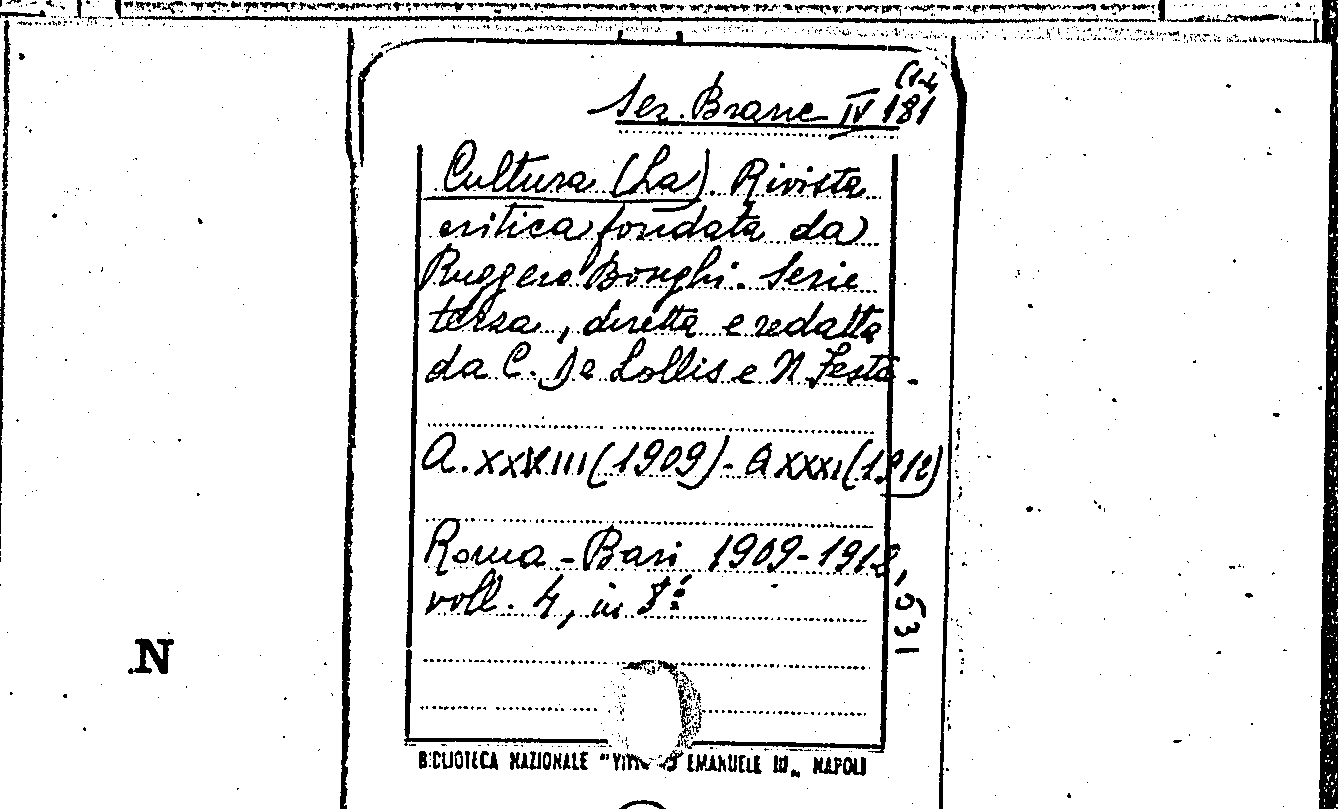 (1-4
Sez. Branc IV 181
Cultura (La). Rivista
critica fondata da
Ruggero Bonghi. Serie
terza, diretta e redatta
da C. De Lollis e N. Festa.
A. XXVIII (1909) - A XXXI (1912)
Roma - Bari 1909-1912,
voll. 4, in 8º
N
BIBLIOTECA NAZIONALE "VITTORIO EMANUELE III" NAPOLI